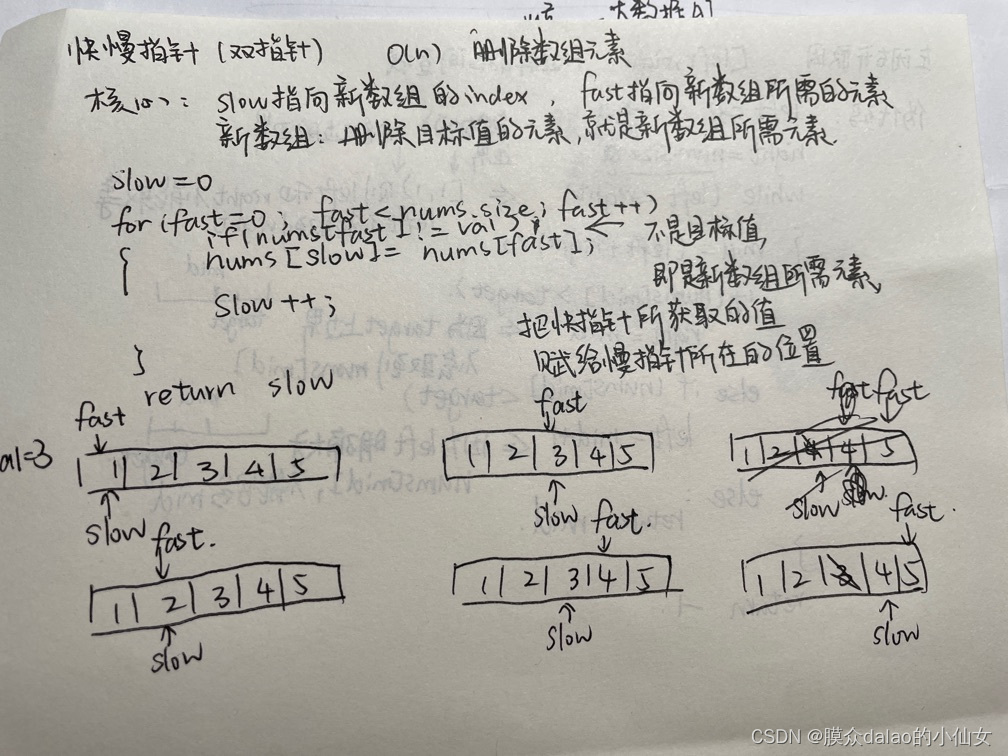 快慢指针（双指针） O(n) 删除数组元素
核心：slow指向新数组的index，fast指向新数组所需的元素
新数组：删除目标值的元素,就是新数组所需元素.
slow=0
for(fast=0; fast<nums.size; fast++)
if(nums[fast]!=val) ← 不是目标值,
{ nums[slow]= nums[fast];
即是新数组所需元素,
slow++;
把快指针所获取的值
赋给慢指针所在的位置
}
return slow
fast fast fast fast
al=3 1 2 3 4 5 1 2 3 4 5 1 2 4 5
slow slow slow
fast. fast. fast.
1 2 3 4 5 1 2 3 4 5 1 2 3 4 5
slow slow slow
CSDN @膜众dalao的小仙女